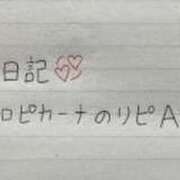 日記💞
ロピカーナのリピA